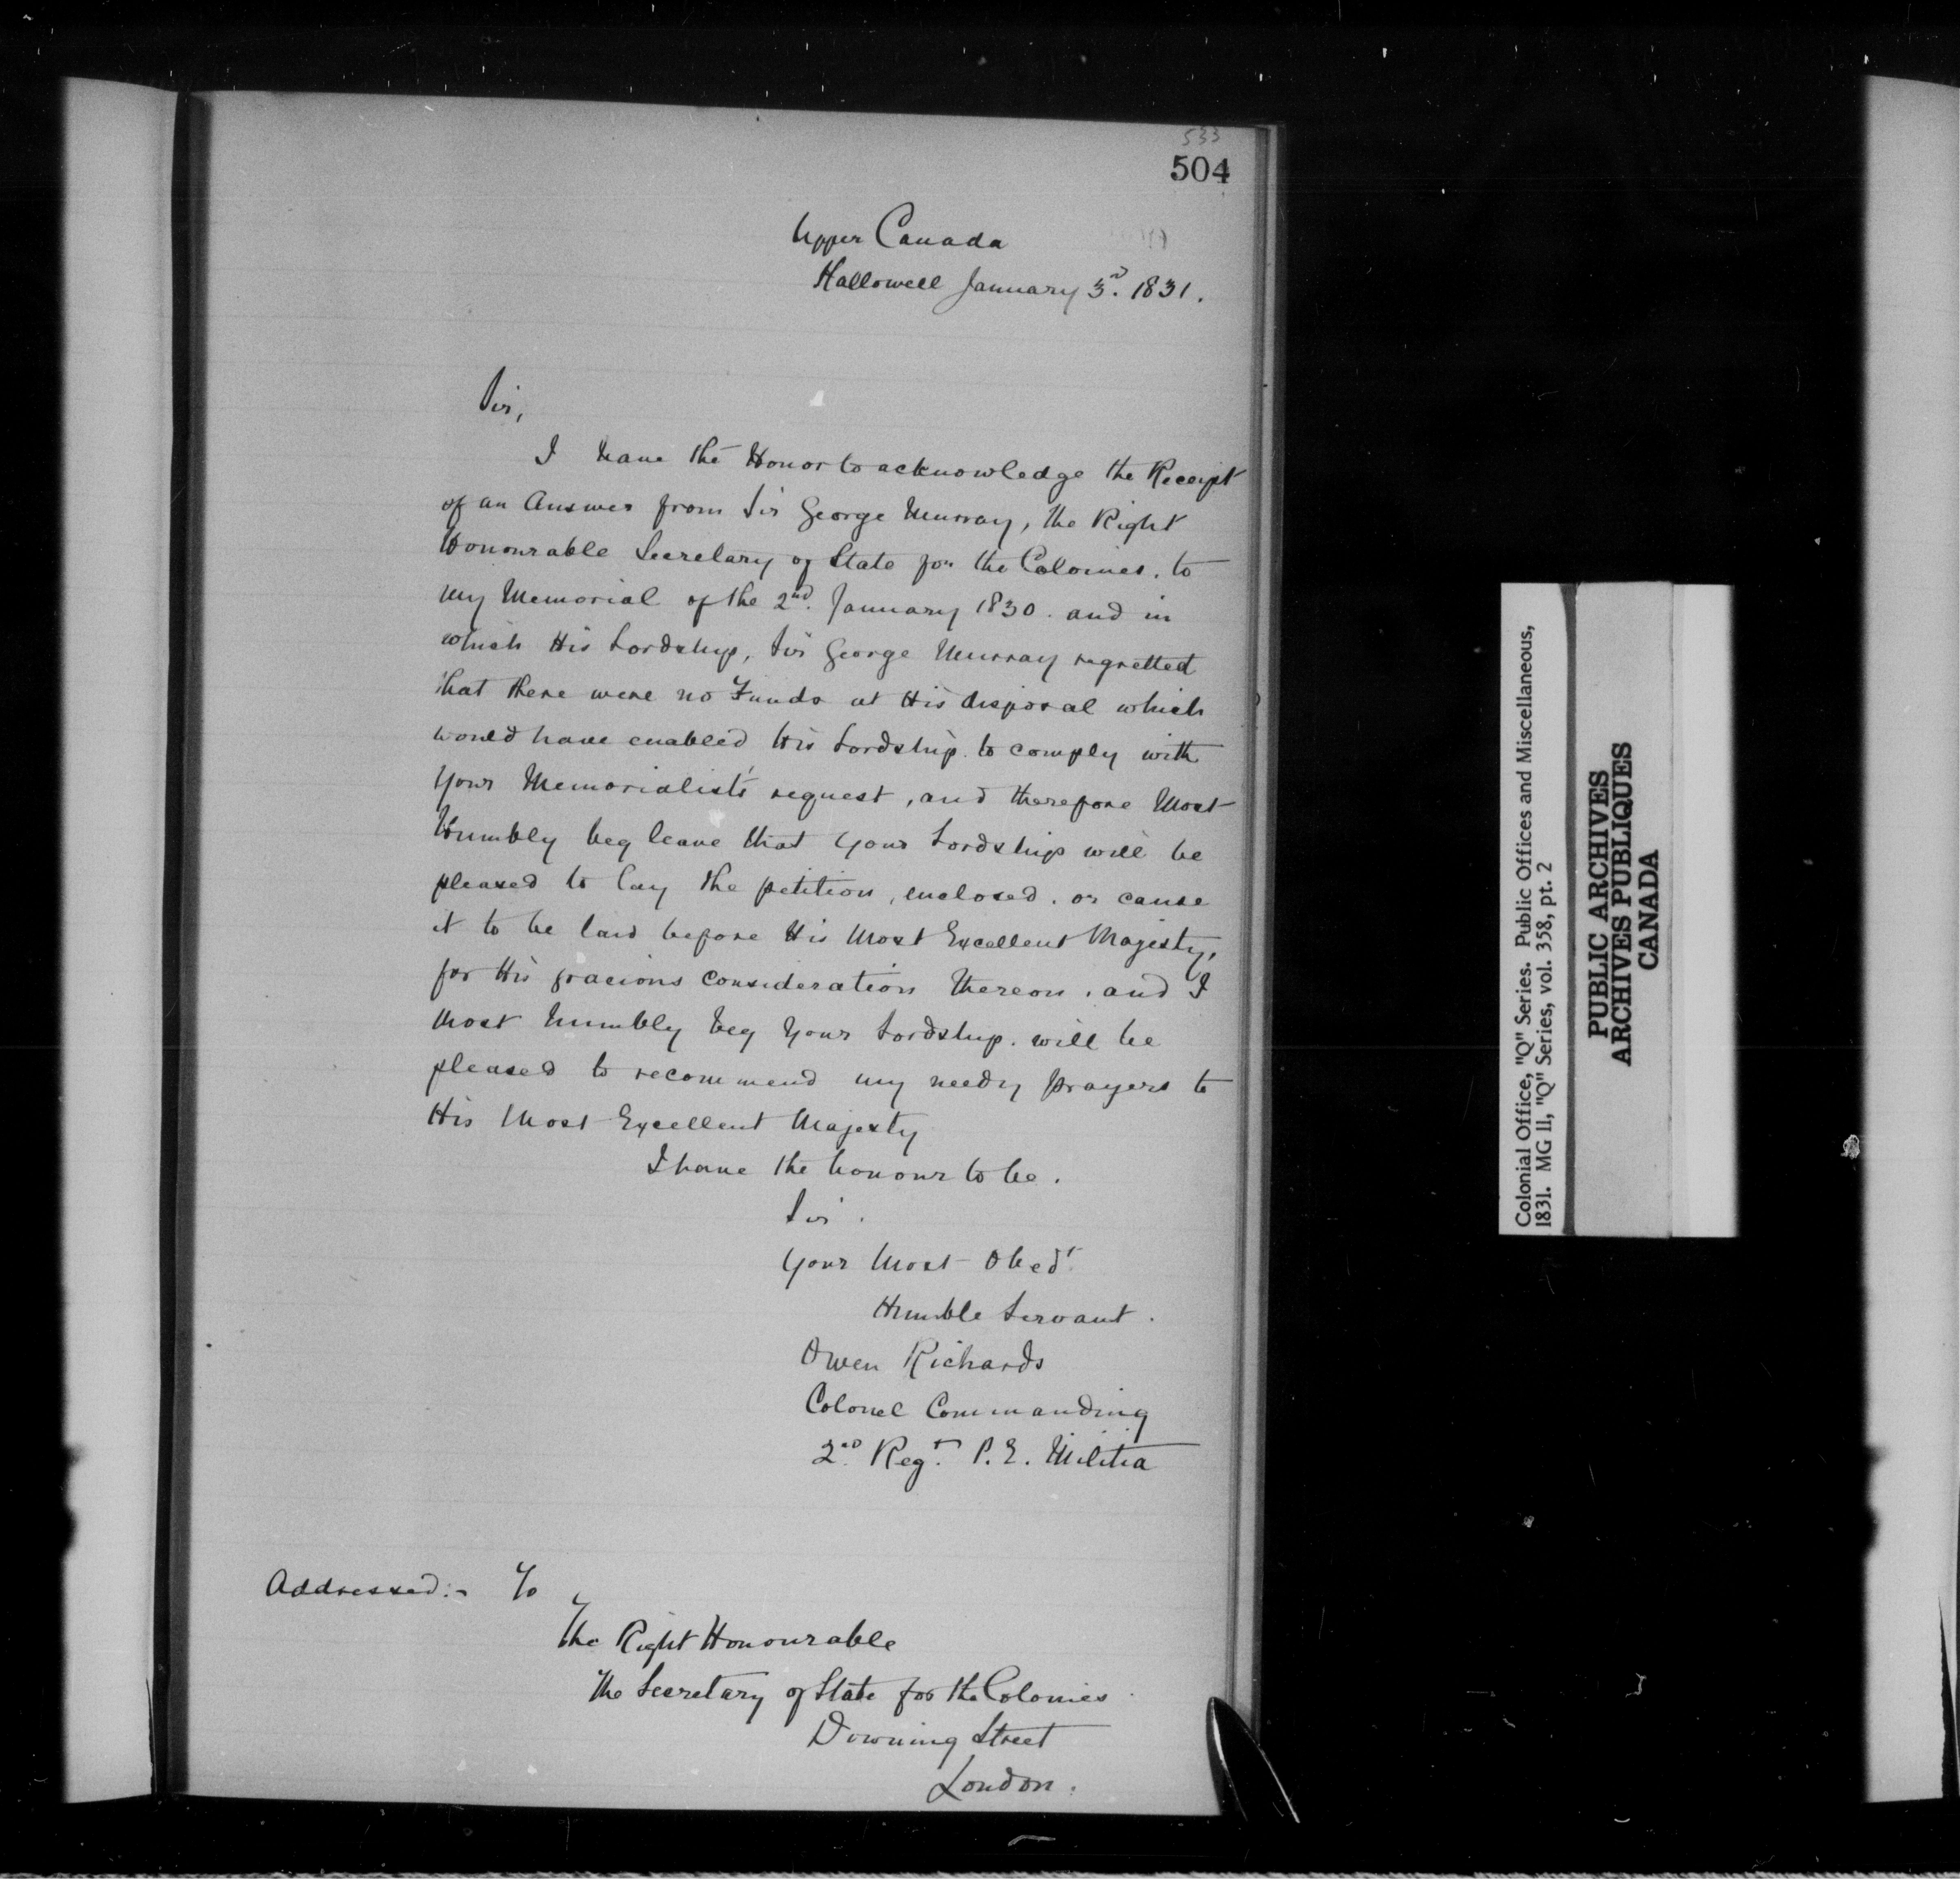 533
504
Upper Canada
Hallowell January 3.d 1831.
Sir,
I have the Honor to acknowledge the Receipt
of an Answer from Sir George Murray, the Right
Honourable Secretary of State for the Colonies. to
my Memorial of the 2nd. January 1830. and in
which His Lordship, Sir George Murray regretted
that there were no Funds at His disposal which
would have enabled His Lordship. to comply with
Your Memorialist's request, and therefore Most
Humbly beg leave that your Lordship will be
pleased to lay the petition, enclosed. or cause
it to be laid before His Most Excellent Majesty,
for His gracious consideration thereon. and I
Most humbly beg Your Lordship. will be
pleased to recommend my needy prayers to
His Most Excellent Majesty
I have the honour to be.
Sir.
Your Most Obed.t
Humble Servant.
Owen Richards
Colonel Commanding
2.nd Reg.t P.E. Militia
Addressed:- To
The Right Honourable
The Secretary of State for the Colonies
Downing Street
London.
Colonial Office, "Q" Series. Public Offices and Miscellaneous,
1831. MG 11, "Q" Series, vol. 358, pt. 2
PUBLIC ARCHIVES
ARCHIVES PUBLIQUES
CANADA